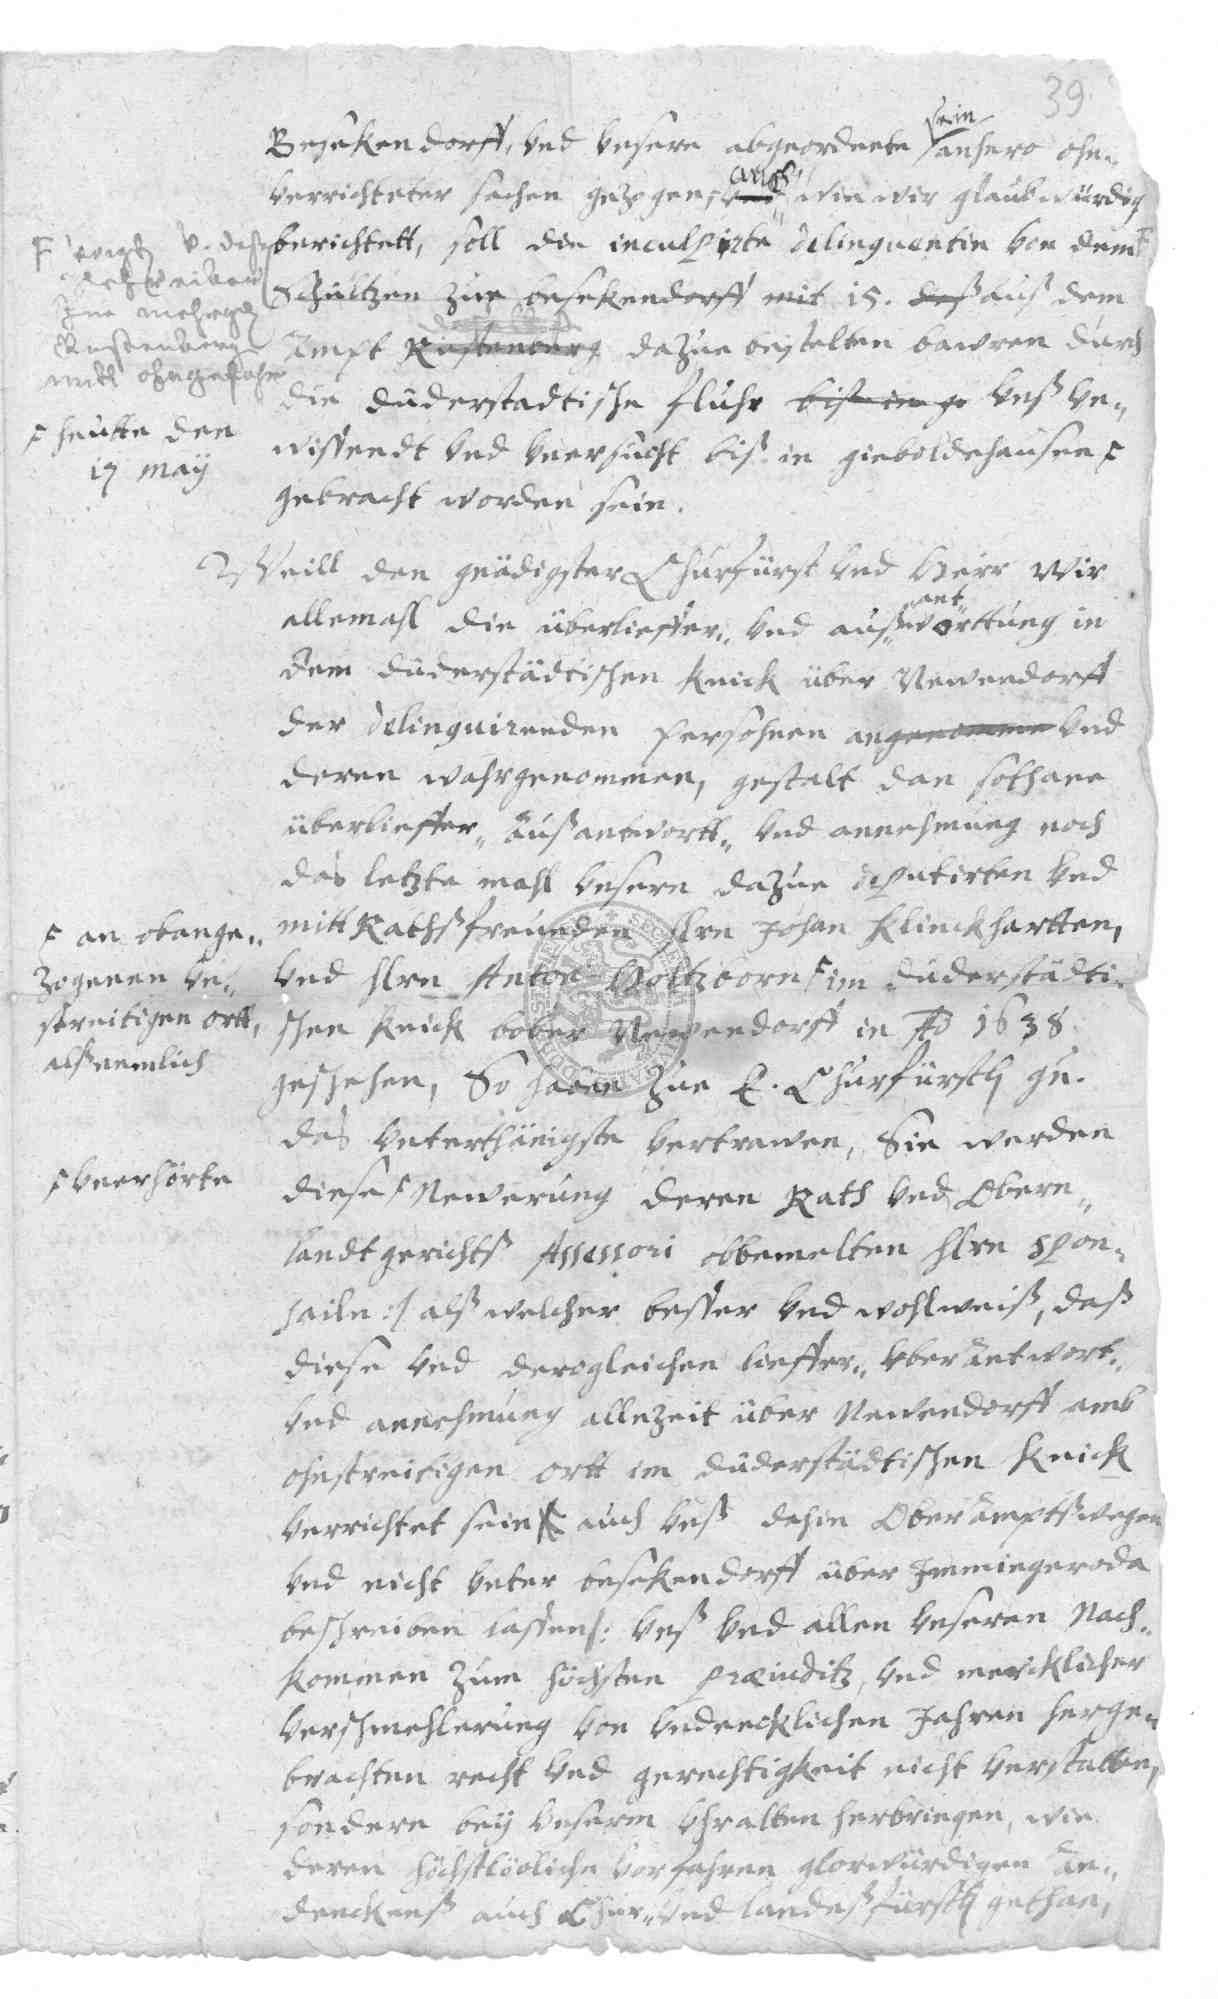 39
Besekendorff, vnd vnsere abgeordnete sein anhero ohn„
verrichteter sachen gezogen, auch, wie wir glaubwürdig
berichtett, soll die inculpirte delinquentin von dem
Schultzen zue besekendorff mit 15. deß auß dem
Ampt Rustenberg dazue bestelten bawren durch
die duderstadtische fluhr biß in ge vnß vn„
wissendt vnd vnersucht biß in gieboldehausen
gebracht worden sein.
vogt v. deß
zue
Rustenberg
mitt ohngefehr
heutte den
17 may
Weill den gnädigster Churfürst vnd Herr wir
allemahl die überlieffer„ vnd außantworttung in
dem duderstädtischen Knick über Newendorff
der delinquirenden persohnen angenomme vnd
deren wahrgenommen, gestalt dan sothane
überlieffer„ Außantwortt„ vnd annehmung noch
das letzte mahl vnsern dazue deputirten vnd
mitt Rathsfreunden Hrn Johan Klinckhartten,
vnd Hrn Anton Holtzborn im duderstädti„
schen Knick bober Newendorff in Ao 1638
geschehen, So haben zue E. Churfürstl gn.
das vnterthänigste vertrawen, Sie werden
diese Newerung deren Rath vnd Obern„
landtgerichtß Assessori obbemelten Hrn Spon„
hailn :/ alß welcher besser vnd wohl weiß, daß
diese vnd derogleichen lieffer„ vberantwort„
vnd annehmung allezeit über Newendorff amb
ohnstreitigen ortt im duderstädtischen Knick
verrichtet sein auch vnß dahin Oberamptßwegen
vnd nicht vnter besekendorff über Immingeroda
beschreiben lassen /: vnß vnd allen vnseren Nach„
kommen zum höchsten præiuditz, vnd mercklicher
verschmehlerung von vndencklichen Jahren herge„
brachten recht vnd gerechtigkeit nicht verstatten,
sondern bey vnserm vhralten herbringen, wie
deren höchstlöbliche vorfahren glorwürdigen An„
denckenß auch Chur„ vnd landeßfürstl gethan,
an obange„
zogenen vn„
streitigen ortt,
alß nemlich
vnerhörte